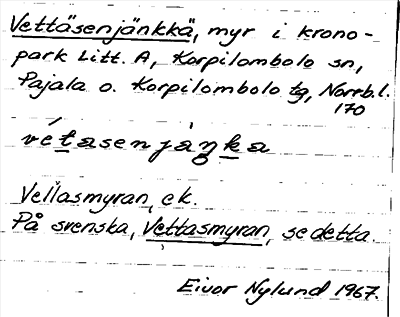 Vettäsenjänkkä, myr i krono-
park Litt. A, Korpilombolo sn,
Pajala o. Korpilombolo tg, Norrb.l.
170
vétasenjàŋka
Vettasmyran, ek.
På svenska, Vettasmyran, se detta.
Eivor Nylund 1967.